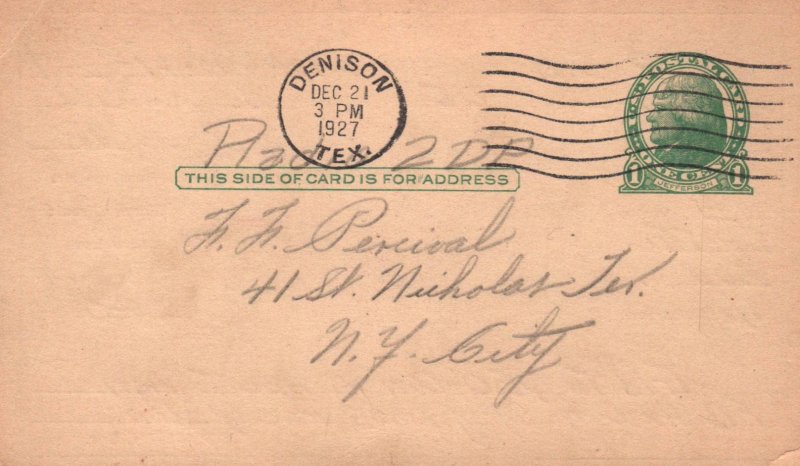 DENISON
DEC 21
3 PM
1927
TEX.
U.S. POSTAL CARD
ONE CENT
1 JEFFERSON 1
Radio 2DP
THIS SIDE OF CARD IS FOR ADDRESS
F. F. Percival
41 St. Nicholas Ter.
N. Y. City